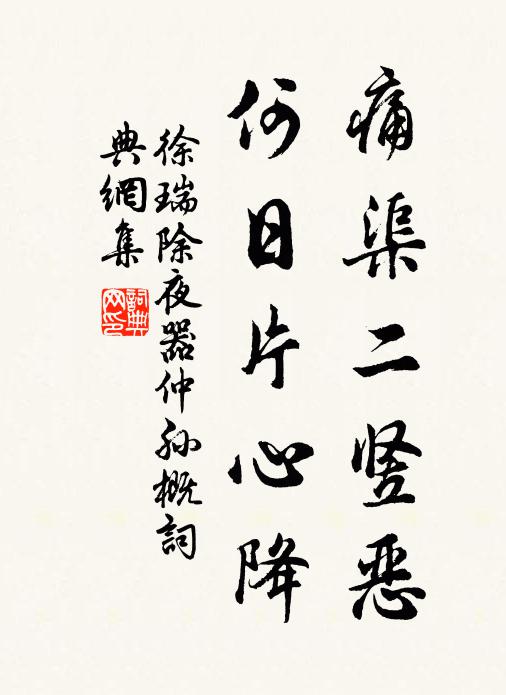 痛渠二竖恶
何日片心降
徐瑞除夜器仲孙概詞
典網集
詞典
网印